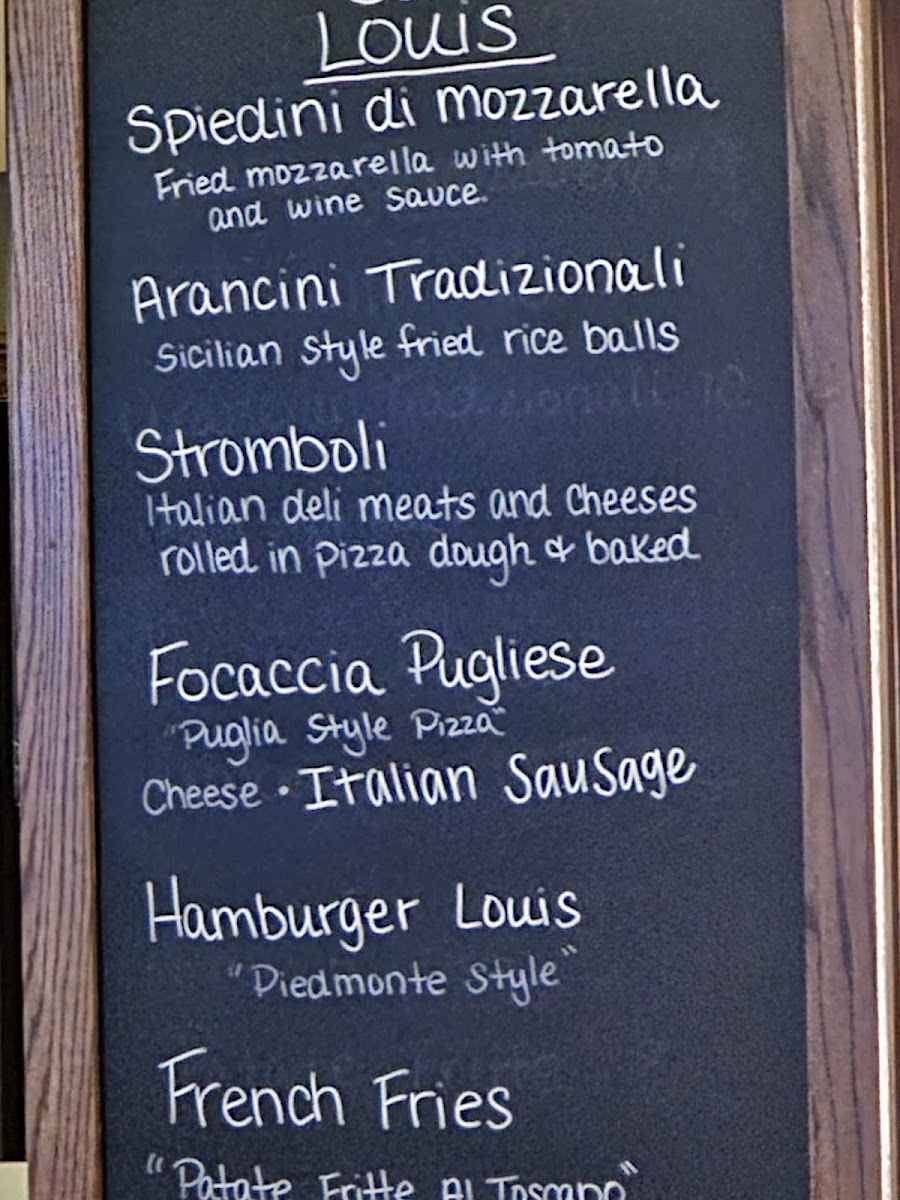 Louis
Spiedini di mozzarella
Fried mozzarella with tomato
and wine sauce.
Arancini Tradizionali
Sicilian style fried rice balls
Stromboli
Italian deli meats and Cheeses
rolled in Pizza dough & baked
Focaccia Pugliese
"Puglia Style Pizza"
Cheese • Italian Sausage
Hamburger Louis
"Piedmonte Style"
French Fries
"Patate Fritte Al Toscano"